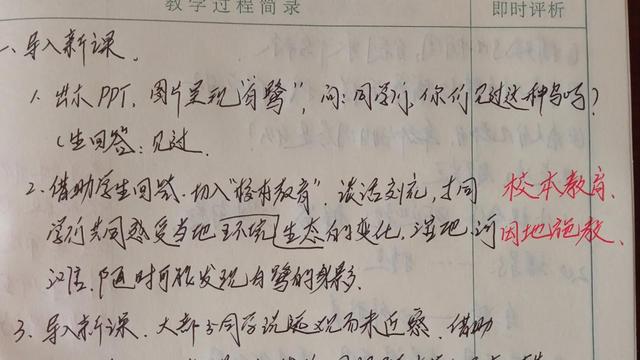 教学过程简录 即时评析
一、导入新课.
1. 出示PPT, 图片呈现“白鹭”, 问: 同学们, 你们见过这种鸟吗?
(生回答: 见过.
2. 借助学生回答. 切入“校本教育”. 谈话交流, 才同 校本教育.
学们共同感受当地环境生态的变化, 湿地, 河 因地施教.
汊, 随时可能发现白鹭的身影.
3. 导入新课. 大部分同学说远观而未近察. 借助